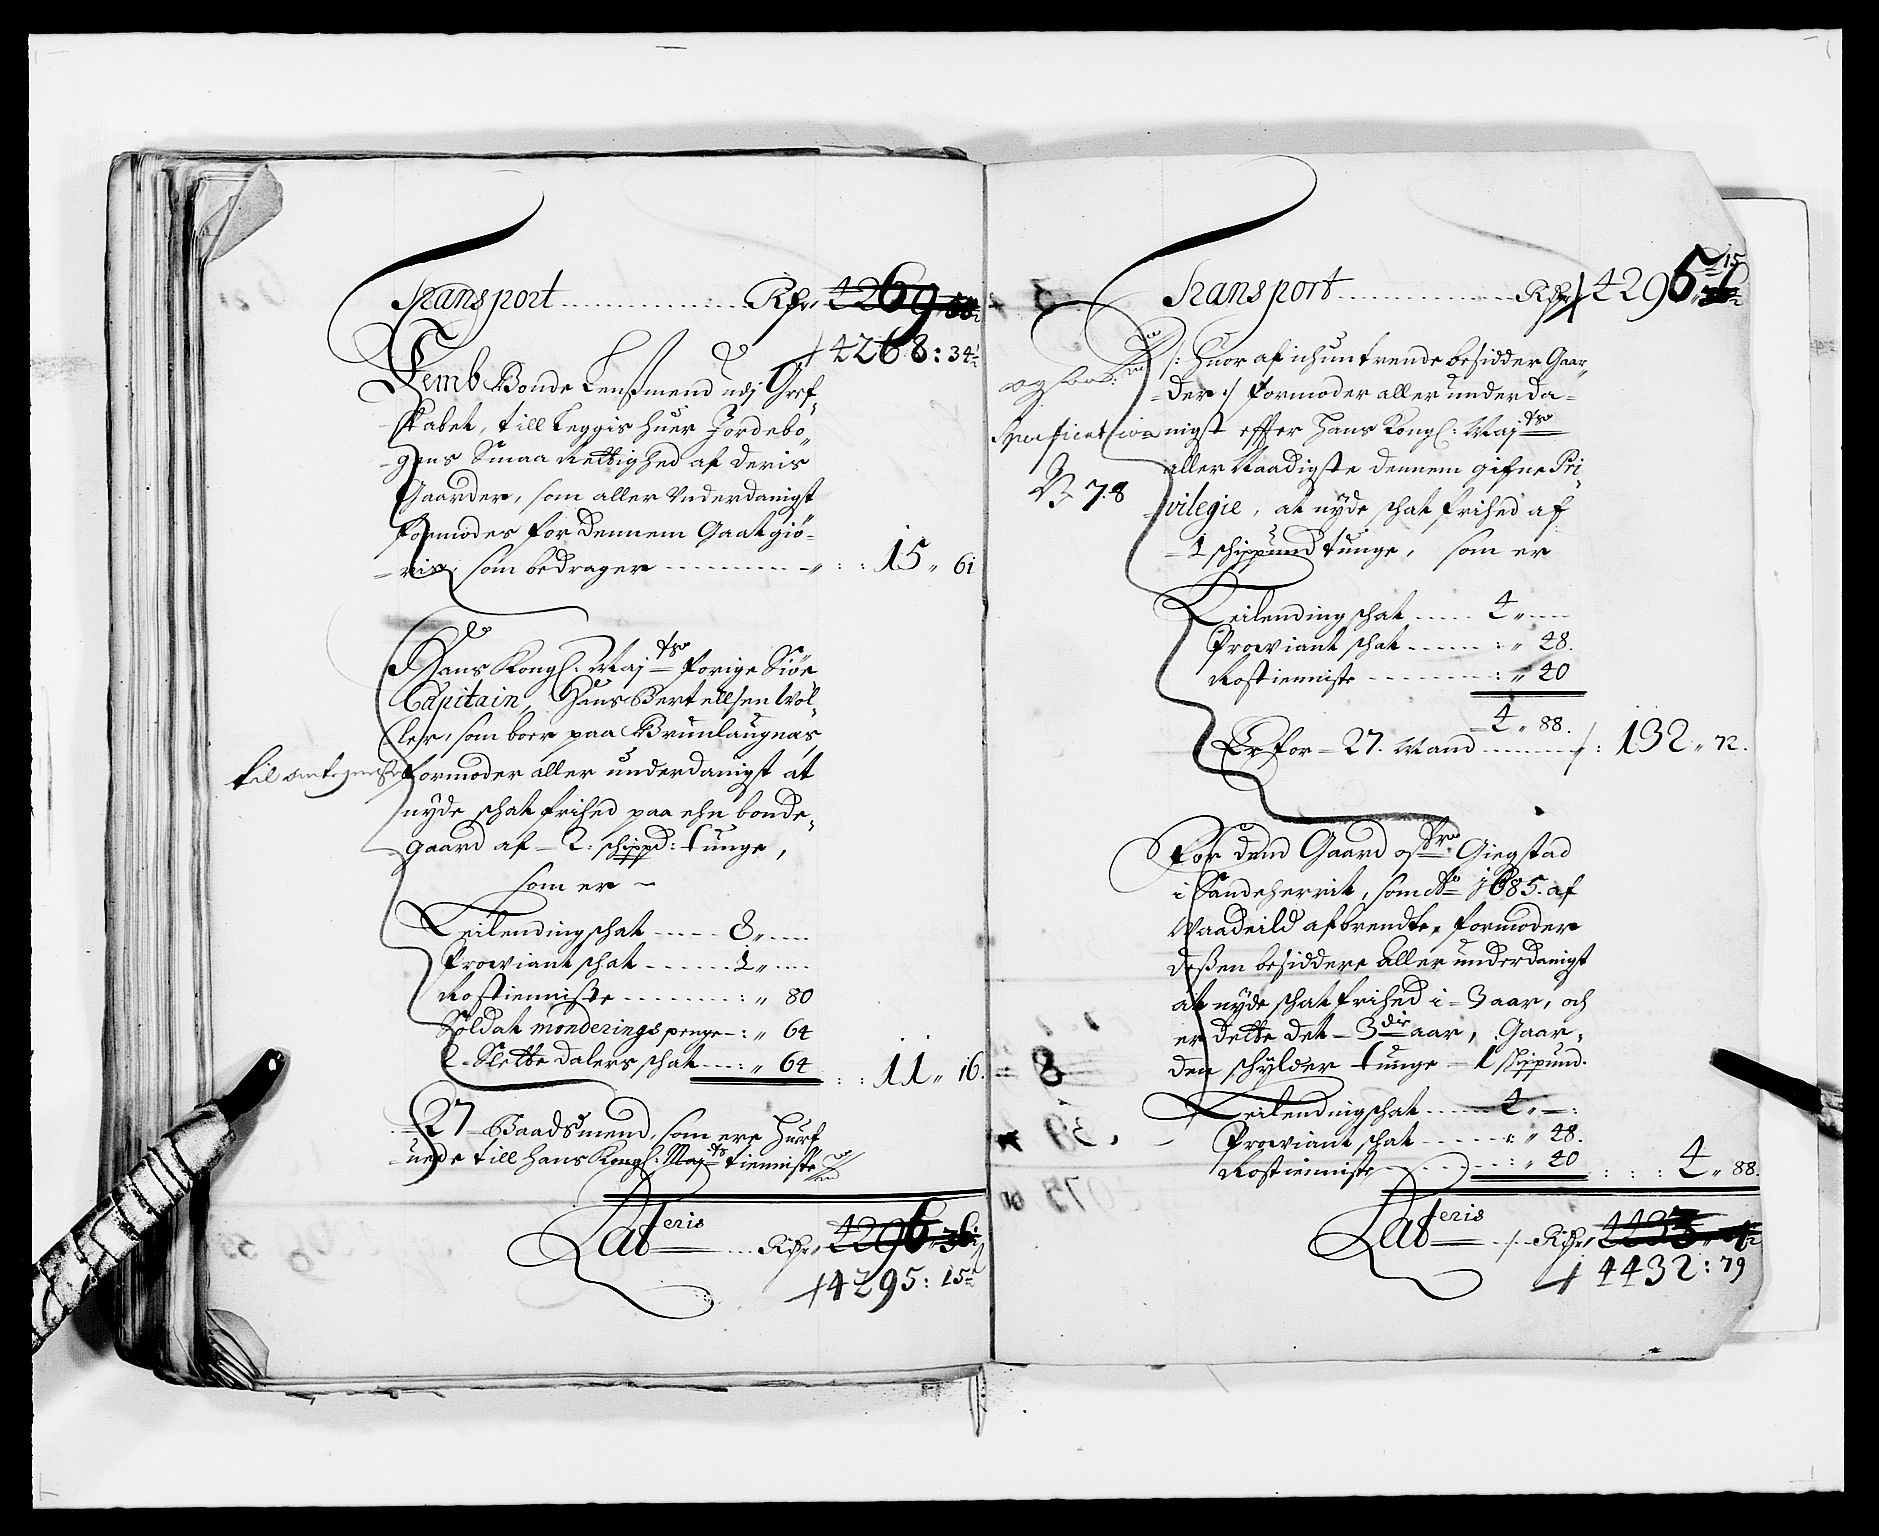 Transport ........ Rdr 4269 
4268 : 34½
Femb Bonde Lensmend udj Gref-
skabet, till Leggis huer Jordebo-
gens Smaa Rettighed af deris
Gaarder, som aller Underdanigst
formodes for dennem Gaatgiø-
ris, som bedrager ........ 15 „ 61
Hans Kongl: Maj:ts forige Siøe
Capitain, Hans Bertellsen Wol-
ler, som boer paa Brunlaugnæs,
formoder aller underdanigst at
nyde schatfrihed paa ehn bonde-
gaard af - 2: schippd: tunge,
som er -
Leilendingschat ...... 8 „ ....
Proviantschat ...... 1 „ ....
Rostienniste ........ : „ 80
Soldat monderings penge - : „ 64
2 Slette dalers schat --- : „ 64 : : 11 „ 16.
27 Baadsmend, som ere hurf
uede till hans Kongl: Maj:ts tienniste
Lateris .... Rdr 4296 „ 36½
4295 : 15½
Transport ........ Rdr 4295 „ 15½
/: Huor af ichun trende besidder Gaar-
der :/ formoder aller underda-
Specification nigst effter Hans Kongl: Maj:ts
aller Naadigste dennem gifne Pri-
N 78 vilegie, at nyde schatfrihed af
- 1 schippund tunge, som er
Leilendingschat ..... 4 „ ----
Proviantschat ...... : „ 48.
Rostienniste -------- : „ 20
4 „ 88.
Er for - 27. Mand ........ : 132 „ 72.
For dend Gaard Giegstad
i Sandeherrit, som Ao 1685. af
Vaadeild afbrendte, formoder
deßen besiddere aller underdanigst
at nyde schatfrihed i - 3 aar, och
er dette det - 3die aar, Gaar-
den schylder tunge - 1 schippund.
Leilendingschat ...... 4 „ -- :
Proviantschat ------ : „ 48.
Rostienniste ------- : „ 20 : : : 4 „ 88.
Lateris ... Rdr 4433
4432 : 79